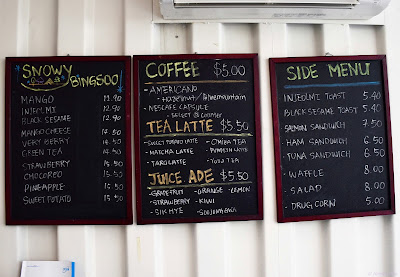 SNOWY
BINGSOO
MANGO 12.90
INJEOLMI 12.90
BLACK SESAME 12.90
MANGO CHEESE 14.50
VERY BERRY 14.50
GREEN TEA 14.50
STRAWBERRY 14.50
CHOCOREO 15.50
PINEAPPLE 14.50
SWEET POTATO 14.50
COFFEE $5.00
- AMERICANO
- Hazelnut / Bluemountain
- NESCAFE CAPSULE
- SELECT @ COUNTER
TEA LATTE $5.50
- SWEET POTATO LATTE - OMIJA TEA
- MATCHA LATTE - PUMPKIN LATTE
- TARO LATTE - YUJA TEA
JUICE ADE $5.50
- GRAPEFRUIT - ORANGE - LEMON
- STRAWBERRY - KIWI
- SIK HYE
SIDE MENU
- INJEOLMI TOAST 5.40
- BLACK SESAME TOAST 5.40
- SALMON SANDWICH 7.50
- HAM SANDWICH 6.50
- TUNA SANDWICH 6.50
- WAFFLE 8.00
- SALAD 8.00
- DRUG CORN 5.00